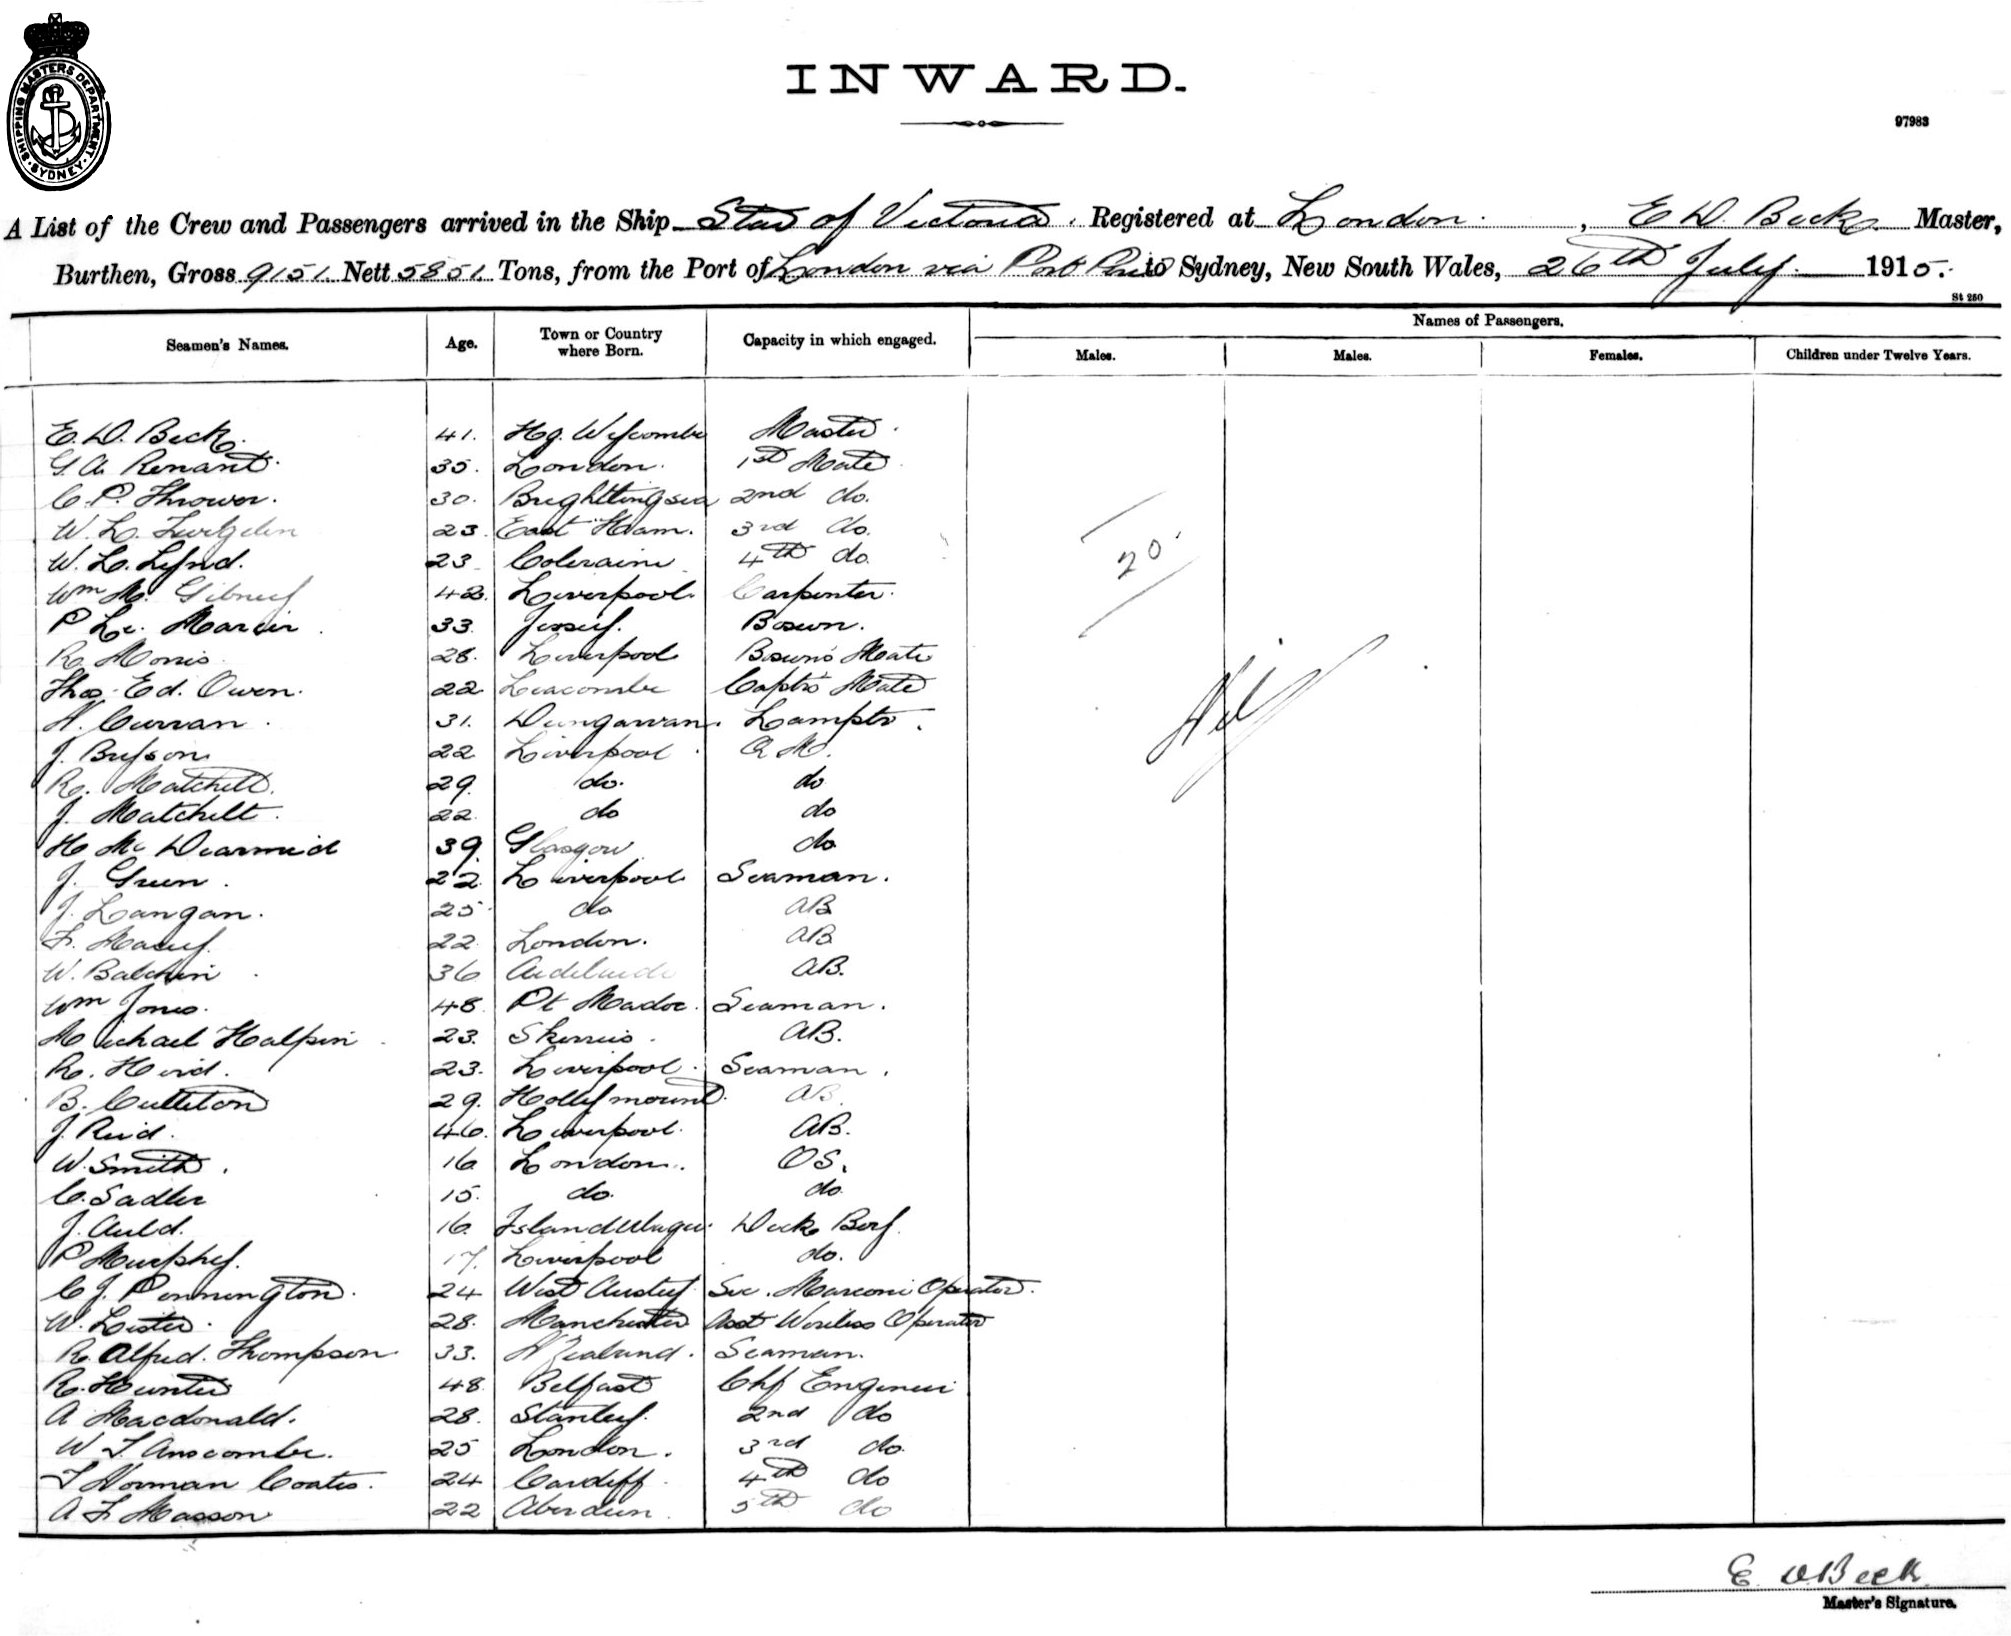 SHIPPING MASTERS DEPARTMENT. SYDNEY.
INWARD.
97983
A List of the Crew and Passengers arrived in the Ship Star of Victoria. Registered at London. , E D. Beck. Master,
Burthen, Gross 9151. Nett 5851. Tons, from the Port of London via Port Pirie to Sydney, New South Wales, 26th July. 1915.
St 250
Seamen's Names. Age. Town or Country where Born. Capacity in which engaged. Names of Passengers.
Males. Males. Females. Children under Twelve Years.
E. D. Beck. 41. Hg. Wycombe Master.
G. A. Renant. 35. London. 1st Mate
C. P. Thrower. 30. Brightlingsea 2nd do.
W. L. 23. East Ham. 3rd do.
W. L. Lynd. 23 Coleraine 4th do. 20.
Wm Mc Gibney 42. Liverpool. Carpenter.
P Le. 33. Jersey. Bosun.
R. Morris 28. Liverpool Bosun's Mate
Thos. Ed. Owen. 22 Capt's Mate Nil
H. Curran. 31. Dungarvan. Lamptr.
J. Bryson 22 Liverpool Q M.
R. Matchett. 29 do. do
J. Matchett. 22 do do
H Mc Dearmid 39. Glasgow do
J. Green. 22. Liverpool Seaman.
J. Langan. 25 do AB
F. Macey. 22 London. AB
W. Balchin 36 Adelaide AB.
Wm Jones. 48 Pt Madoc. Seaman.
Michael Halpin 23. Skerries. AB.
R. Hird. 23. Liverpool. Seaman.
B. Culliton 29. Hollymount. AB.
J. Reid. 46. Liverpool. AB.
W. Smith. 16 London. OS.
C. Sadler 15. do. do.
J. Auld. 16. Islandmagee. Deck Boy.
P Murphy. 17. Liverpool do.
C J. Pennington. 24 West Austry Sec. Marconi Operator.
W. Lister. 28. Manchester Asst Wireless Operator
R. Alfred. Thompson 33. N Zealand. Seaman.
R. Hunter 48 Belfast Chf Engineer
A Macdonald. 28. Stanley. 2nd do
W. T. Anscombe. 25 London. 3rd do.
T Norman Coates. 24 Cardiff 4th do
A F Masson 22 Aberdeen. 5th do
E. D Beck
Master's Signature.